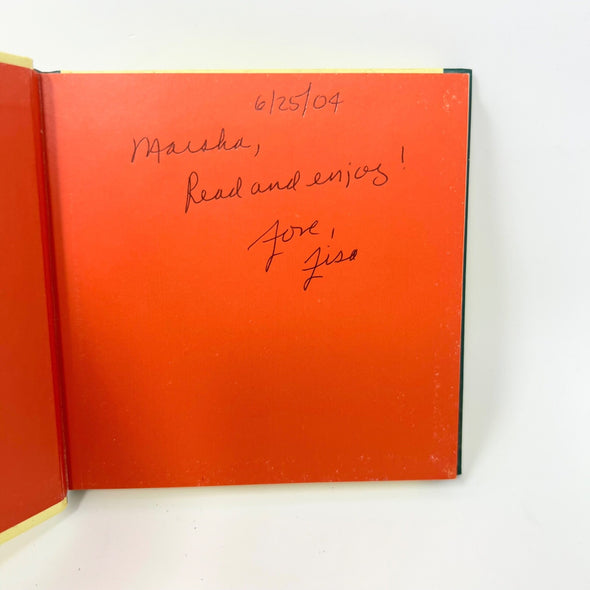 6/25/04
Marsha,
Read and enjoy!
Love,
Lisa